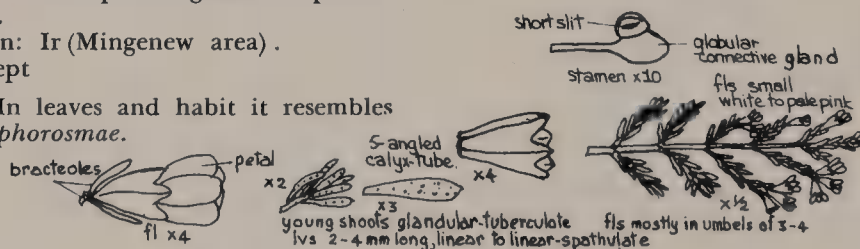 n: Ir (Mingenew area).
ept
In leaves and habit it resembles
phorosmae.
short slit
globular
connective gland
stamen x10
fls small
white to pale pink
5-angled
calyx-tube.
bracteoles
petal
x2
x3
x4
x½
fl x4
young shoots glandular-tuberculate
lvs 2-4 mm long, linear to linear-spathulate
fls mostly in umbels of 3-4